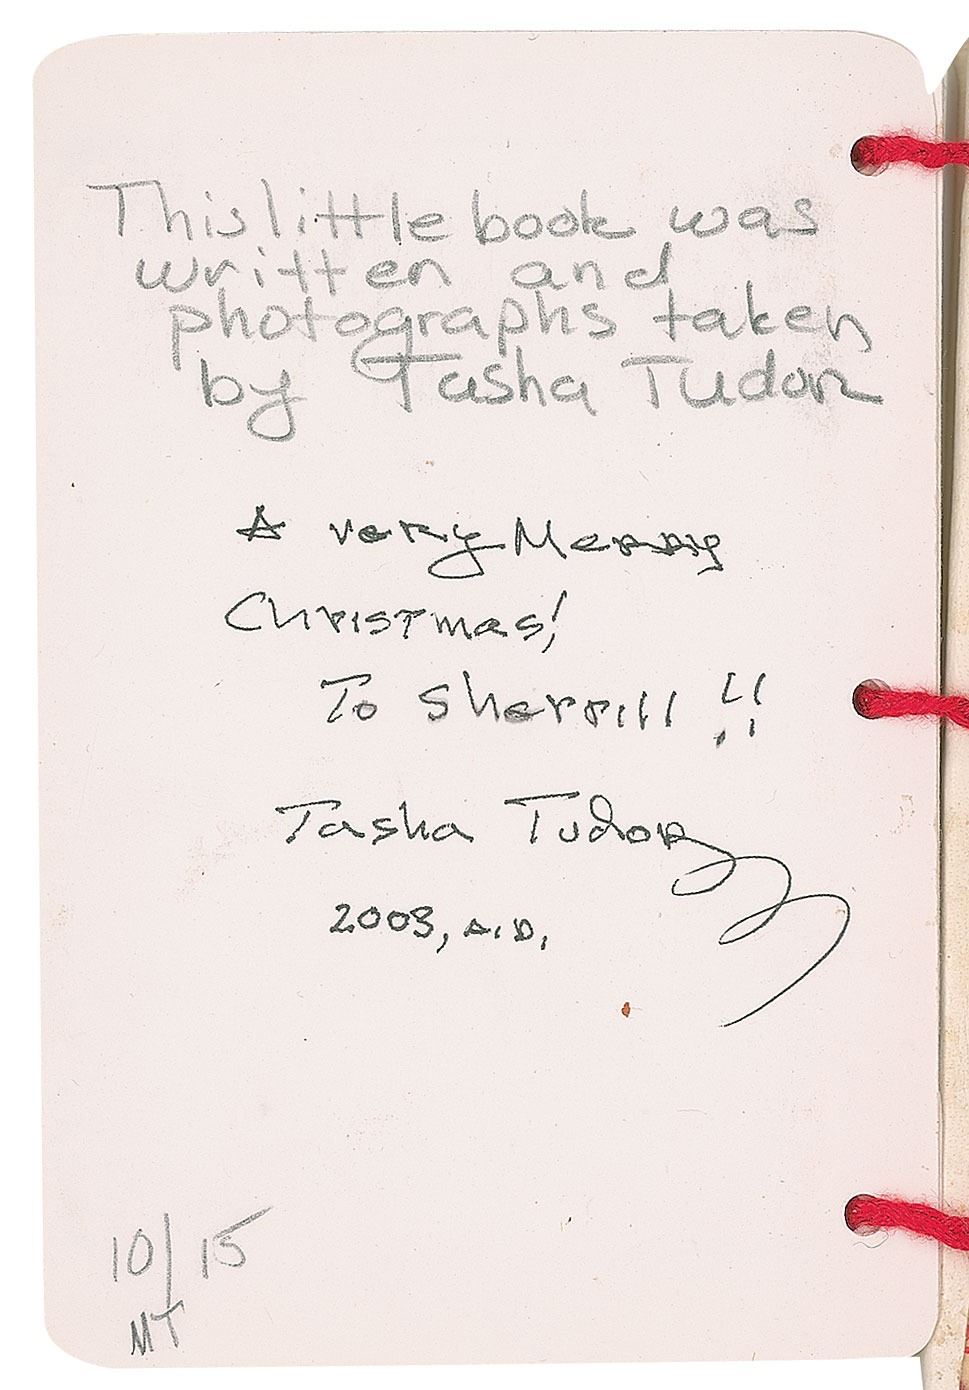 This little book was
written and
photographs taken
by Tasha Tudor
A very Merry
Christmas!
To Sherrill!!
Tasha Tudor
2003, A.D.
10/15
MT